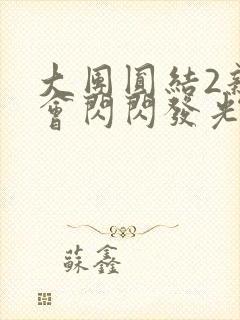 大團圓結2新
會閃閃發光
蘇鑫